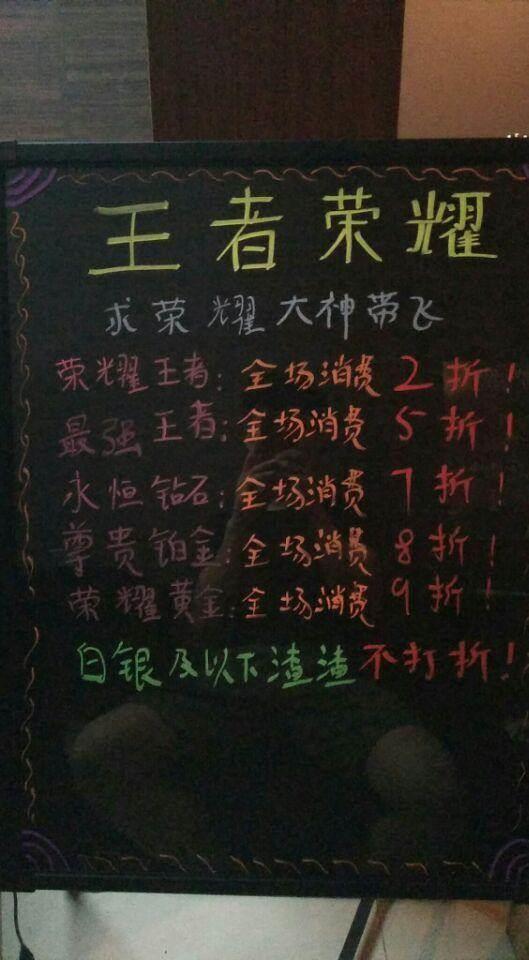 王者荣耀
求荣耀大神带飞
荣耀王者:全场消费2折!
最强王者:全场消费5折!
永恒钻石:全场消费7折!
尊贵铂金:全场消费8折!
荣耀黄金:全场消费9折!
白银及以下渣渣不打折!